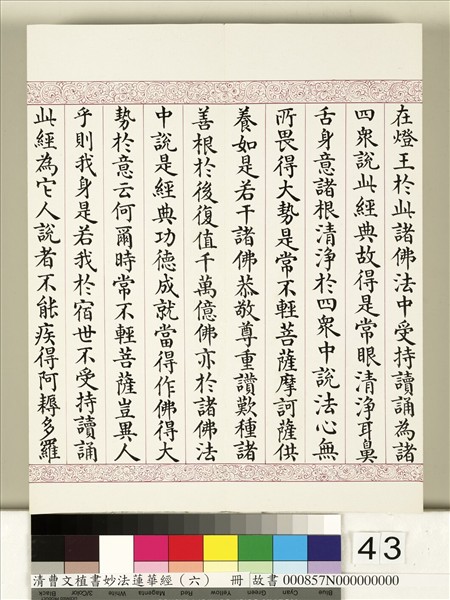 在燈王於此諸佛法中受持讀誦為諸
四衆說此經典故得是常眼清淨耳鼻
舌身意諸根清淨於四衆中說法心無
所畏得大勢是常不輕菩薩摩訶薩供
養如是若干諸佛恭敬尊重讚歎種諸
善根於後復值千萬億佛亦於諸佛法
中說是經典功德成就當得作佛得大
勢於意云何爾時常不輕菩薩豈異人
乎則我身是若我於宿世不受持讀誦
此經為它人說者不能疾得阿耨多羅
43
清曹文植書妙法蓮華經（六） 冊 故書 000857N000000000
Black 3/Color White Magenta Red Yellow Green Cyan Blue